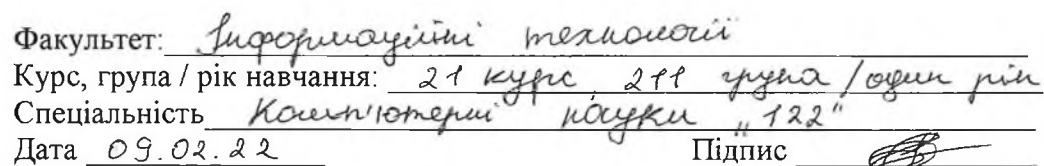 Факультет: Інформаційні технології
Курс, група / рік навчання: 21 курс 211 група / один рік
Спеціальність Комп'ютерні науки „122"
Дата 09.02.22 Підпис